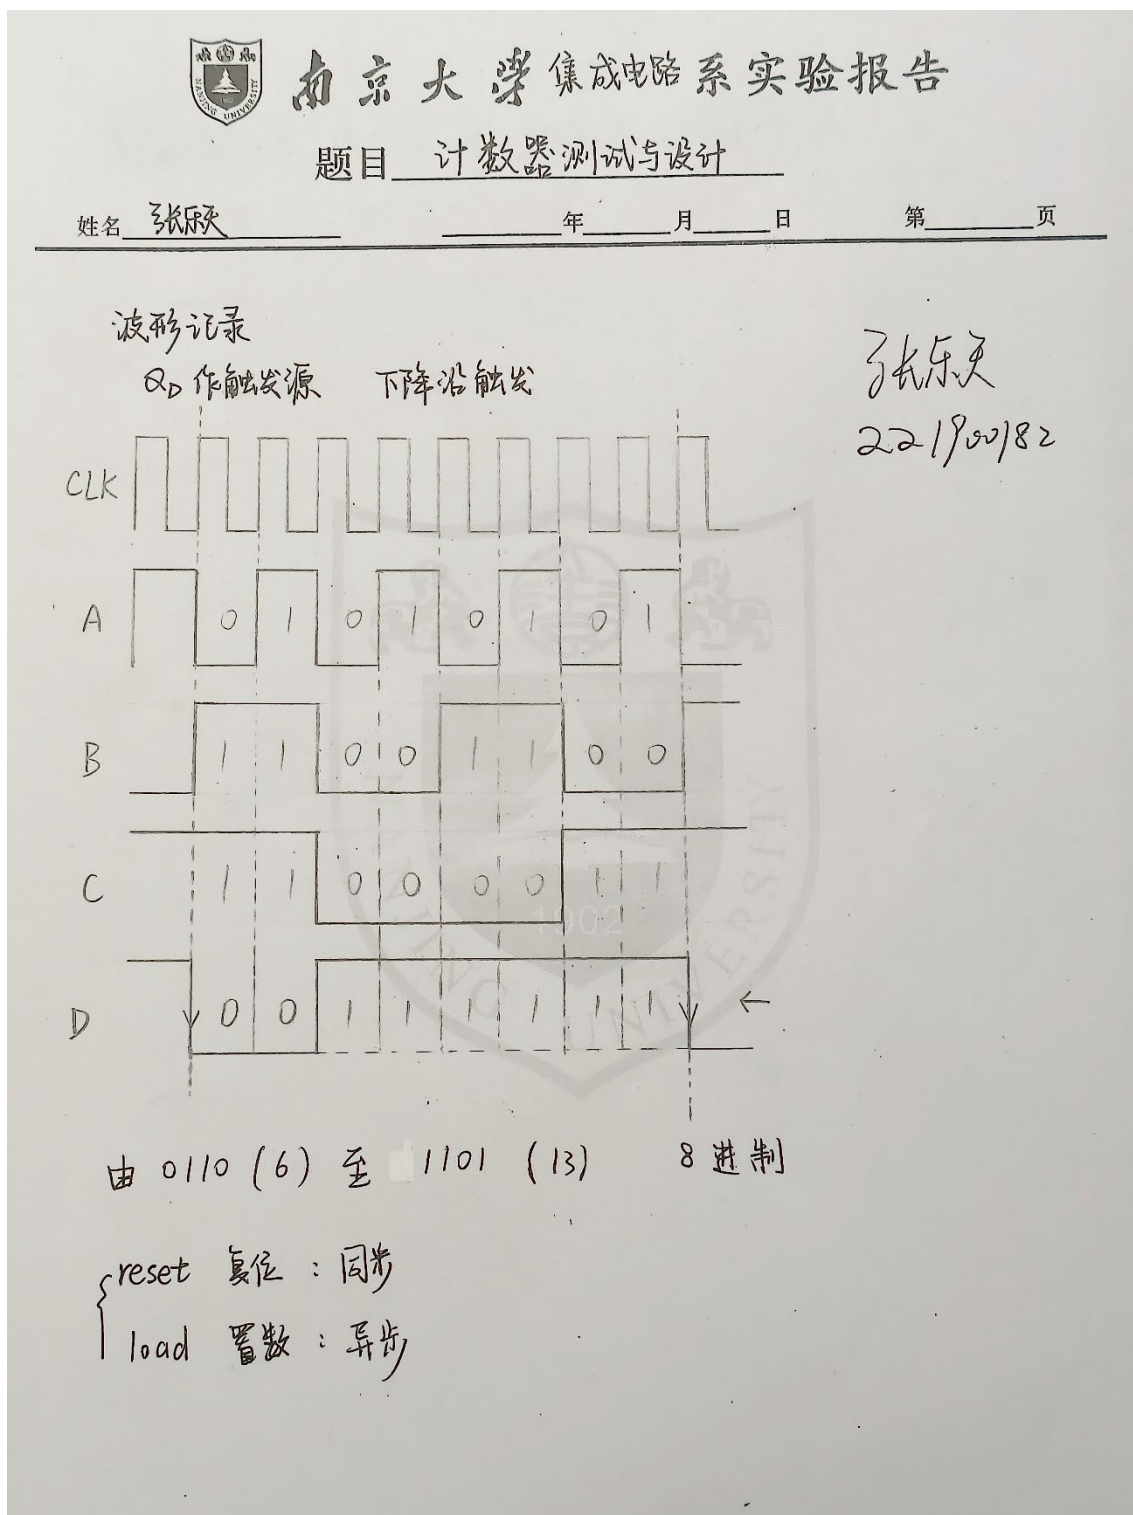 NANJING UNIVERSITY
南京大学 集成电路 系实验报告
题目 计数器测试与设计
姓名 张乐天 年 月 日 第 页
波形记录
Q_D 作触发源 下降沿触发
张乐天
221900182
CLK
A 0 1 0 1 0 1 0 1
B 1 1 0 0 1 1 0 0
C 1 1 0 0 0 0 1 1
1902
D 0 0 1 1 1 1 1 1 ←
NANJING UNIVERSITY
由 0110 (6) 至 1101 (13) 8 进制
reset 复位 : 同步
load 置数 : 异步